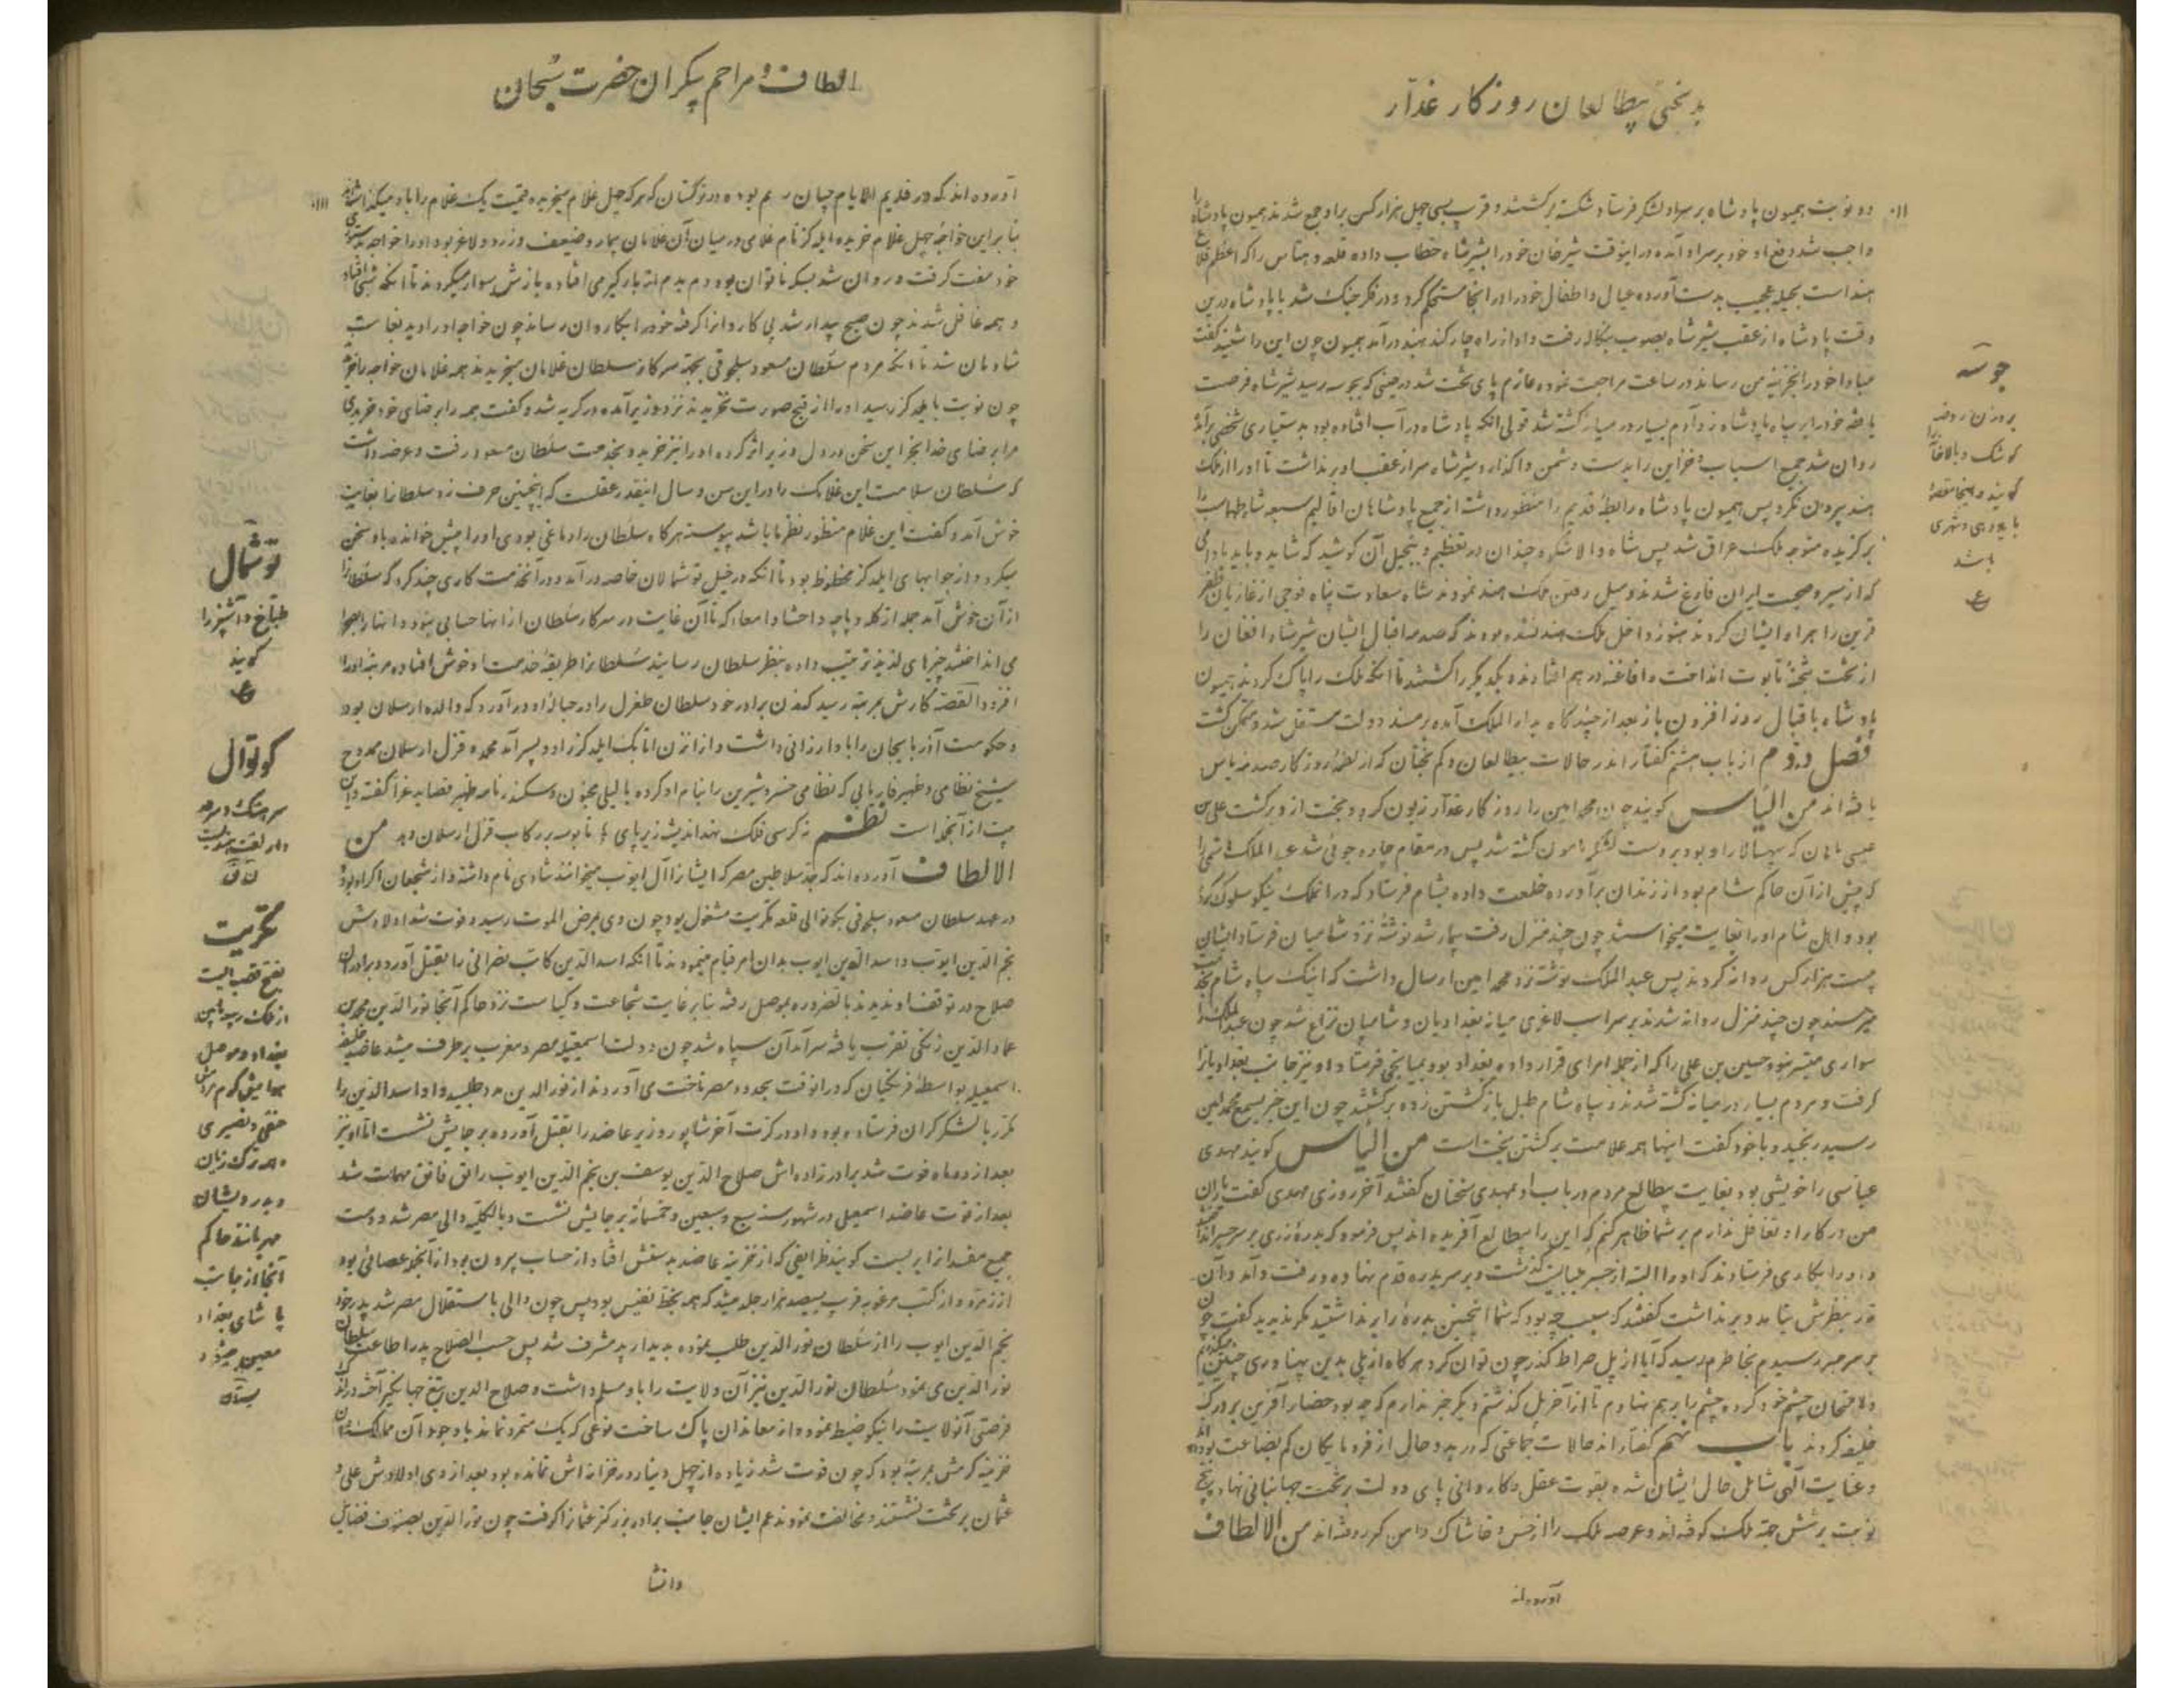 بدبختی بیطالعان روزکار غدّار
دو نوبت همیون پادشاه بر سر او لشکر فرستاد شکسته برکشتند و قرب سی چهل هزار کس بر او جمع شدند همیون پادشاه را
واجب شد دفع او خود بر سر او آمده در اینوقت شیرخان خود را بشیرشاه خطاب داده قلعه رهتاس را که اعظم قلاع
هند است بحیله عجیب بدست آورده عیال و اطفال خود را در انجا مستحکم کرد و در فکر جنک شد با پادشاه درین
وقت پادشاه از عقب شیرشاه بصوب بنکاله رفت و او از راه چارکند بهند درآمد همیون چون این را شنید کفت
مبادا خود را بخزینه من رساند در ساعت مراجعت نموده عازم پای تخت شد در حینی که بجوسه رسید شیرشاه فرصت
یافته خود را بر سپاه پادشاه زد آدم بسیار در میانه کشته شد قولی انکه پادشاه در آب افتاده بود بدستیاری شخصی برآمد
روان شد جمیع اسباب و خزاین را بدست دشمن واکذارد شیرشاه سر از عقب او برنداشت تا او را از ملک
هند بیرون نکرد پس همیون پادشاه رابطه قدیم را منظور داشت از جمیع پادشاهان اقالیم سبعه شاه طهماسب را
برکزیده متوجه ملک عراق شد پس شاه والا شکوه چندان در تعظیم و تبجیل آن کوشید که شاید و باید
که از سیر و صحبت ایران فارغ شدند و میل رفتن ملک هند نمودند شاه سعادت پناه فوجی از غازیان ظفر
قرین را همراه ایشان کردند هنوز داخل ملک هند نشده بودند که صدمه اقبال ایشان شیرشاه افغان را
از تخت بتختهٔ تابوت انداخت و افاغنه در هم افتادند و یکدیکر را کشتند تا انکه ملک را پاک کردند همیون
پادشاه باقبال روزافزون باز بعد از چندکاه بدار الملک آمده بر مسند دولت مستقل شد و متمکن کشت
فصل دوم از باب هشتم کفتار اندر حالات بیطالعان و کم بختان که از لطمهٔ روزکار صدمه یاس
یافته اند من الیأس کویند چون محمد امین را روزکار غدار زبون کرد و بخت از او برکشت علی بن
عیسی ماهان که سپهسالار او بود بر دست لشکر مامون کشته شد پس در مقام چاره جوئی شد عبد الملک هاشمی را
که پیش از آن حاکم شام بود از زندان برآورده خلعت داده بشام فرستاد که در آنملک نیکو سلوک کرده
بود و اهل شام او را بغایت میخواستند چون چند منزل رفت بیمار شد نوشتهٔ نزد شامیان فرستاد ایشان
بیست هزار کس روانه کردند پس عبد الملک نوشته نزد محمد امین ارسال داشت که اینک سپاه شام بخدمت
میرسند چون چند منزل روانه شدند بر سر اسب لاغری میانه بغدادیان و شامیان نزاع شد چون عبد الملک را
سواری میسر نبود حسین بن علی را که از جمله امرای قرارداده بغداد بود بمیانجی فرستاد او نیز جانب بغدادیان را
کرفت و مردم بسیار در میانه کشته شدند و سپاه شام طبل بازکشتن زده برکشتند چون این خبر بسمع محمد امین
رسید رنجید و با خود کفت اینها همه علامت برکشتن بخت است من الیأس کویند مهدی
عباسی را خویشی بود بغایت بیطالع مردم در باب او بمهدی سخنان کفتند آخر روزی مهدی کفت یاران
من در کار او تغافل ندارم بر شما ظاهر کنم که این را بیطالع آفریده اند پس فرمود که بدرهٔ زری بر سر جسر انداختند
و او را بکاری فرستادند که او را البته از جسر میبایست کذشت و بر سر بدره قدم نهاده و رفت و آمد و آن
در نظرش نیامد و برنداشت کفتند که سبب چه بود که شما انچنین بدره را برنداشتید مکر ندیدید کفت چون
بر سر جسر رسیدم بخاطرم رسید که آیا از پل صراط کذر چون توان کرد هرکاه از پلی بدین پهناوری چنین میکذرم
و امتحان چشم خود کرده چشم را بر هم نهادم تا از آخر پل کذشتم دیکر خبر ندارم که چه بود حضار آفرین بر درک
خلیفه کردند باب نهم کفتار اندر حالات جماعتی که در بدو حال از فرومایکان کم بضاعت بوده اند
و عنایت الهی شامل حال ایشان شده بقوت عقل و کاردانی پای دولت بر تخت جهانبانی نهاده پنج
نوبت بر شش جهة ملک کوفته اند و عرصه ملک را از خس و خاشاک دامن کرد روفته اند من الالطاف
آورده اند
جوسه
بر وزن روضه
کوشک و بالاخانه را
کویند و اینجا مقصد
باید دهی و شهری
باشد
ع
الطاف و مراحم بیکران حضرت سبحان
آورده اند که در قدیم الایام چنان رسم بوده در ترکستان که هرکه چهل غلام میخرید قیمت یک غلام را باو میکذاشتند
بنا براین خواجهٔ چهل غلام خریده ایلدکز نام غلامی در میان آن غلامان بیمار و ضعیف و زرد و لاغر بود او را خواجه بدستوری
خود مفت کرفت و روان شد بسکه ناتوان بود دم بدم از بارکیر می افتاد و بازش سوار میکردند تا انکه شبی افتاد
و همه غافل شدند چون صبح بیدار شد پی کاروان را کرفته خود را بکاروان رساند چون خواجه او را دید بغایت
شادمان شد تا انکه مردم سلطان مسعود سلجوقی بجهة سرکار سلطان غلامان میخریدند همه غلامان خواجه را خریدند
چون نوبت بایلدکز رسید او را از قبح صورت نخریدند نزد وزیر آمده در کریه شد و کفت همه را برضای خود خریدی
مرا برضای خدا بخر این سخن در دل وزیر اثر کرده او را نیز خرید و بخدمت سلطان مسعود رفت و عرضه داشت
که سلطان سلامت این غلامک را در این سن و سال اینقدر عقلست که اینچنین حرف زد سلطان را بغایت
خوش آمد و کفت این غلام منظور نظر ما باشد پیوسته هرکاه سلطان را دماغی بودی او را پیش خوانده باو سخن
میکرد و از جوابهای ایلدکز محظوظ بود تا انکه در خیل توشمالان خاصه درآمد و در آنخدمت کاری چند کرد که سلطان را
از آن خوش آمد جمله از کله و پاچه و احشا و امعاء که تا آن غایت در سرکار سلطان از انها حسابی نبود و انها را بصحرا
می انداختند چیزهای لذیذ ترتیب داده بنظر سلطان رسانید سلطان را طریقه خدمت او خوش افتاده مرتبه او را
افزود القصه کارش بمرتبهٔ رسید که زن برادر خود سلطان طغرل را در حباله او درآورد که والده ارسلان بود
و حکومت آذربایجان را باو ارزانی داشت و از انزن اتابک ایلدکز را دو پسر آمد محمد و قزل ارسلان ممدوح
شیخ نظامی و ظهیر فاریابی که نظامی خسرو شیرین را بنام او کرده با لیلی مجنون و سکندرنامه ظهیر قصاید غرا کفته و این
بیت از آنجمله است نظم نه کرسی فلک نهد اندیشه زیر پای تا بوسه بر رکاب قزل ارسلان دهد من
الالطاف آورده اند که جد سلاطین مصر که ایشانرا آل ایوب میخوانند شادی نام داشته و از شجعان اکراد بود
در عهد سلطان مسعود سلجوقی بکوتوالی قلعه تکریت مشغول بود چون وی بمرض الموت رسید و فوت شد اولادش
نجم الدین ایوب و اسد الدین ایوب بدان امر قیام مینمودند تا انکه اسد الدین کاتب نصرانی را بقتل آورد و برادران
صلاح در توقف ندیدند بالضروره بموصل رفته بنابر غایت شجاعت و کیاست نزد حاکم آنجا نور الدین محمد بن
عماد الدین زنکی تقرب یافته سرآمد آن سپاه شد چون دولت اسمعیلیهٔ مصر و مغرب برطرف میشد عاضد خلیفه
اسمعیلیه بواسطهٔ فرنکیان که در انوقت بحدود مصر تاخت می آوردند از نور الدین مدد طلبید و او اسد الدین را
مکرر با لشکر کران فرستاده بود و او در کرت آخر شاپور وزیر عاضد را بقتل آورده بر جایش نشست اما او نیز
بعد از دو ماه فوت شد برادرزاده اش صلاح الدین یوسف بن نجم الدین ایوب راتق فاتق مهمات شد
بعد از فوت عاضد اسمعیلی در شهور سنه سبع و سبعین و خمسمائه بر جایش نشست و بالکلیه والی مصر شد و دست
جمیع مفسدان را بر بست کویند ظرایفی که از خزینه عاضد بدستش افتاد از حساب بیرون بود از آنجمله عصائی بود
از زمرد و از کتب مرغوبه قریب بسیصد هزار جلد میشد که همه بخط نفیس بود پس چون والی باستقلال مصر شد پدر خود
نجم الدین ایوب را از سلطان نور الدین طلب نموده بدیدار پدر مشرف شد پس حسب الصلاح پدر اطاعت سلطان
نور الدین می نمود سلطان نور الدین نیز آن ولایت را باو مسلم داشت و صلاح الدین تیغ جهانکیر آخته در اندک
فرصتی آنولایت را نیکو ضبط نموده از معاندان پاک ساخت نوعی که یک متمرد نماند با وجود آن ممالک
خزینه کرمش بمرتبهٔ بود که چون فوت شد زیاده از چهل دینار در خزانه اش نمانده بود بعد از وی اولادش علی و
عثمان بر تخت نشستند و مخالفت نمودند عم ایشان جانب برادر بزرکتر عثمان را کرفت چون نور الدین بصنوف فضایل
دانشا
توشمال
طباخ و آشپز را
کویند
ع
کوتوال
سرهنک و سرحد
دار لغت هندیست
تکریت
بفتح قصبه ایست
مابین
بغداد و موصل
هوایش کرم
حنفی و نصیری
و همه ترک زبان
و بدرویشان
مهربانند حاکم
آنجا از جانب
پاشای بغداد
معین میشود